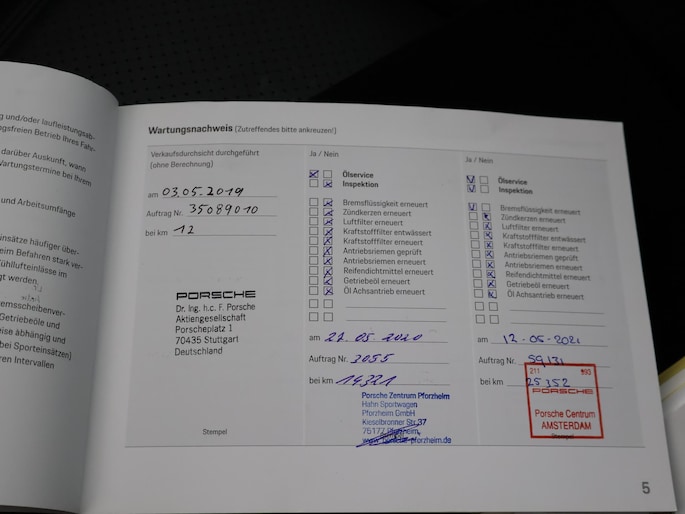 g und/oder laufleistungsab-
ngsfreien Betrieb Ihres Fahr-
darüber Auskunft, wann
Wartungstermine bei Ihrem
und Arbeitsumfänge
insätze häufiger über-
eim Befahren stark ver-
ühllufteinlässe im
gt werden.
emsscheibenver-
Getriebeöle und
eise abhängig und
bei Sporteinsätzen)
ren Intervallen
Wartungsnachweis (Zutreffendes bitte ankreuzen!)
Verkaufsdurchsicht durchgeführt
(ohne Berechnung)
am 03.05.2019
Auftrag Nr. 35089010
bei km 12
PORSCHE
Dr. Ing. h.c. F. Porsche
Aktiengesellschaft
Porscheplatz 1
70435 Stuttgart
Deutschland
Stempel
Ja / Nein
Ölservice
Inspektion
Bremsflüssigkeit erneuert
Zündkerzen erneuert
Luftfilter erneuert
Kraftstofffilter entwässert
Kraftstofffilter erneuert
Antriebsriemen geprüft
Antriebsriemen erneuert
Reifendichtmittel erneuert
Getriebeöl erneuert
Öl Achsantrieb erneuert
am 05.2020
Auftrag Nr. 3055
bei km 14321
Porsche Zentrum Pforzheim
Hahn Sportwagen
Pforzheim GmbH
Kieselbronner Str.37
75177 Pforzheim
www.porsche-pforzheim.de
Ja / Nein
Ölservice
Inspektion
Bremsflüssigkeit erneuert
Zündkerzen erneuert
Luftfilter erneuert
Kraftstofffilter entwässert
Kraftstofffilter erneuert
Antriebsriemen geprüft
Antriebsriemen erneuert
Reifendichtmittel erneuert
Getriebeöl erneuert
Öl Achsantrieb erneuert
am 12-05-2021
Auftrag Nr. 59131
bei km 25352
211 993
PORSCHE
Porsche Centrum
AMSTERDAM
Stempel
5